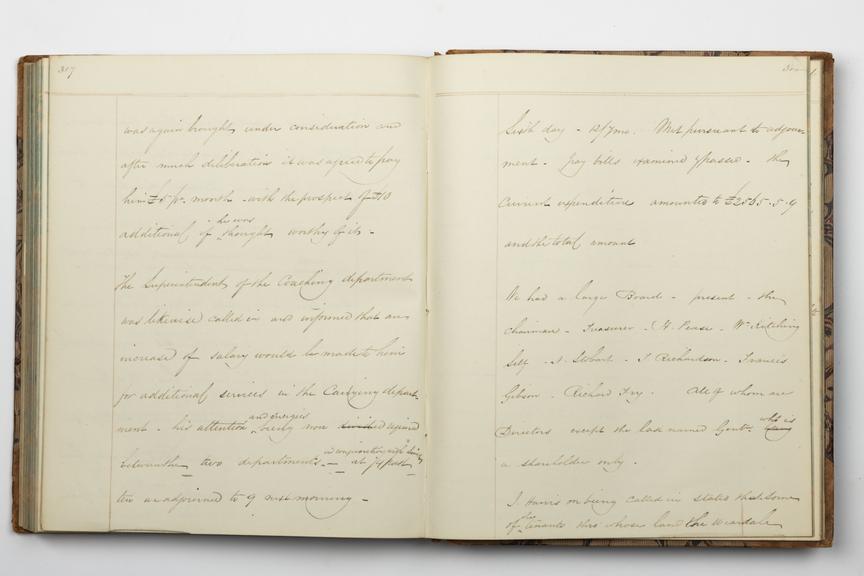 317
was again brought under consideration and
after much deliberation it was agreed to pay
him £5 pr month - with the prospect of £10
he was
additional if thought worthy of it -
The Superintendent of the Coaching department
was likewise called in and informed that an
increase of salary would be made to him
for additional services in the Carrying depart
ment - his attention being now required
and energies
between the two departments - at ¼ past
in conjunction with
ten we adjourned to 9 next morning -
Sixth day - 12/7 mo. Met pursuant to adjourn
ment - pay bills examined & passed - the
Current expenditure amounted to £2565.5.9
and the total amount
We had a large Board - present - the
Chairman - Treasurer - H. Pease - Wm Kitching
Self - Stobart - T Richardson - Francis
Gibson - Richard Fry. All of whom are
Directors except the last named Gentn. who is
a shareholder only.
J. Harris on being called in states that some
of the tenants thro whose land the Weardale